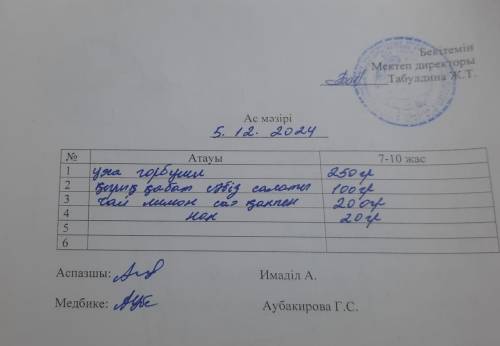 Бекітемін
Мектеп директоры
Табулдина Ж.Т.
Ас мәзірі
5. 12. 2024
№ Атауы 7-10 жас
1 уха горбуши 250гр
2 қырыққабат сәбіз салаты 100гр
3 чай лимон 200гр
4 нан 20гр
5
6
Аспазшы: Имаділ А.
Медбике: Аубакирова Г.С.